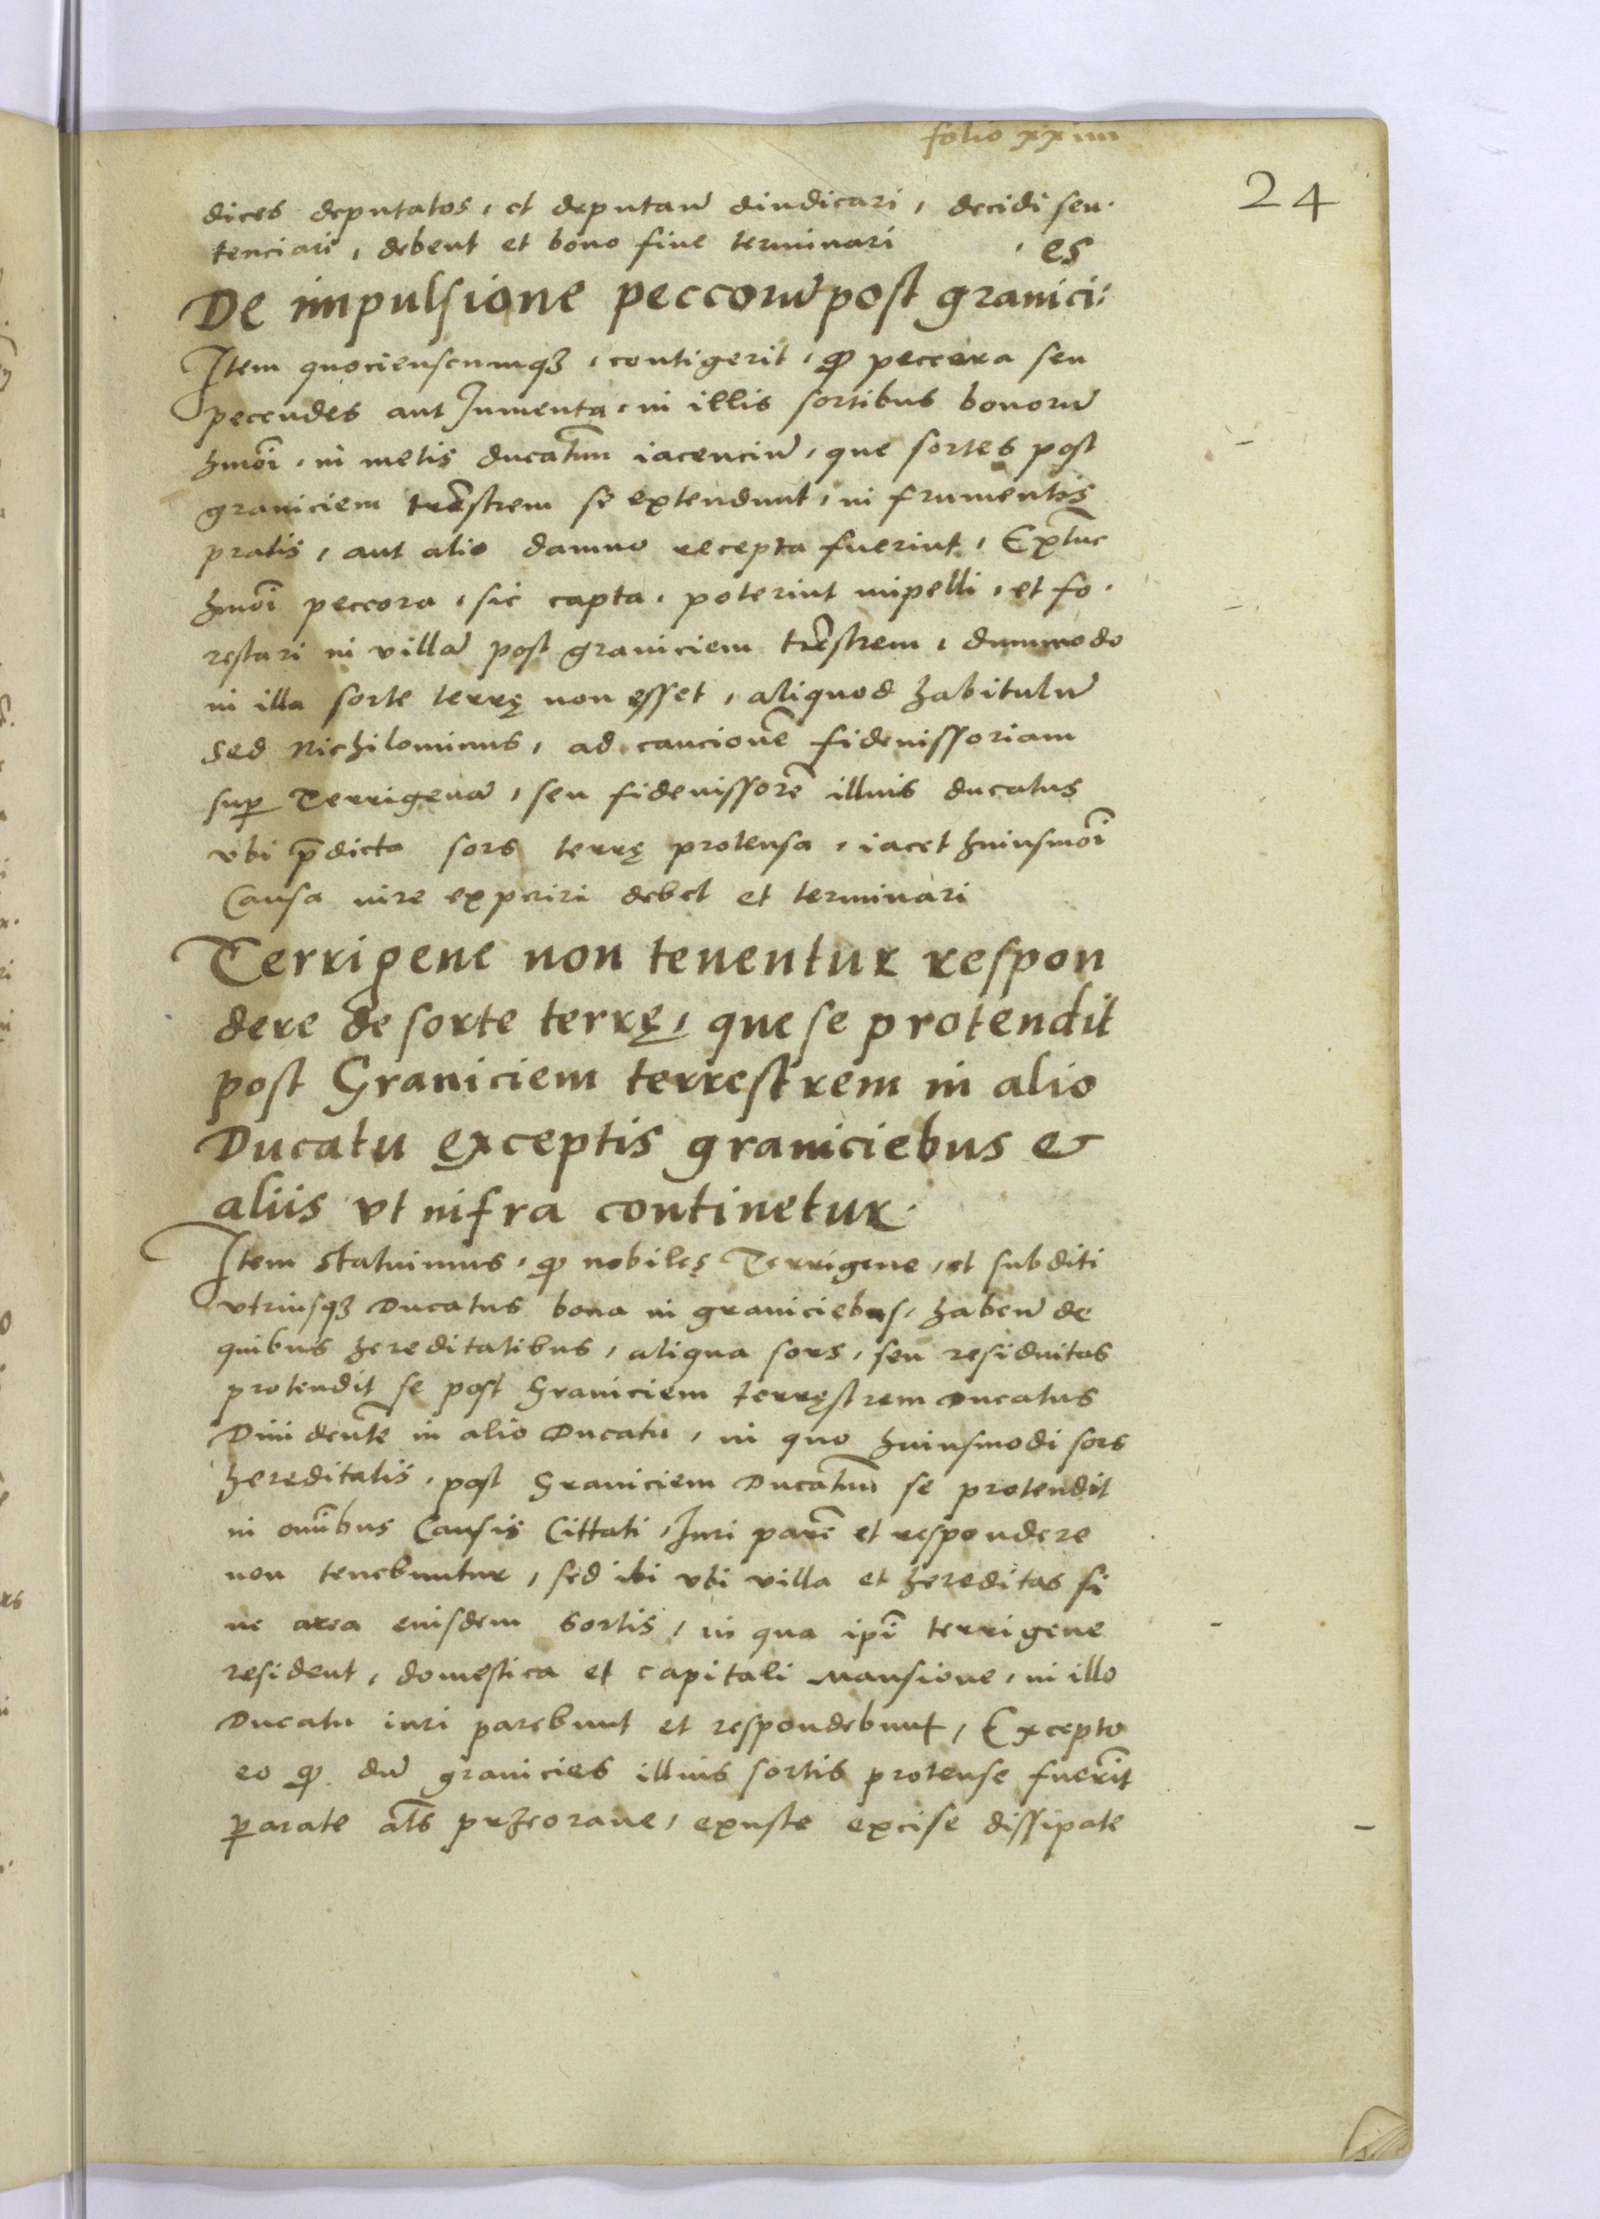 folio xxiiii
24
dices deputatos, et deputan̄ diudicari, decidi sen-
tenciari, debent et bono fine terminari
es
De impulsione peccorū post granici:
Item quocienscumqꝫ, contigerit, ꝙ peccora seu
peccudes aut Jumenta, in illis sortibus bonorū
hmōi, in metis ducatuū iacenciū, que sortes post
graniciem trēstrem se extendunt, in frumentis
pratis, aut alio damno recepta fuerint, Extūc
hmōi peccora, sic capta, poterint impelli, et fo-
restari in villā post graniciem trēstrem, dummodo
in illa sorte terrę non ęsset, aliquod habitulū
sed Nichilominus, ad caucionē fideiussoriam
suꝑ Terrigenā, seu fideiussorē illius ducatus
vbi p̄dicta sors terrę protensa, iacet huiusmōi
Causa iure expeiri debet et terminari
Terrigene non tenentur respon
dere de sorte terrę, que se protendit
post Graniciem terrestrem in alio
Ducatu exceptis graniciebus &
aliis vt infra continetur.
Item statuimus, ꝙ nobiles Terrigene, et subditi
vtriusqꝫ Ducatus bona in graniciebus, haben̄ de
quibus hereditatibus, aliqua sors, seu residuitas
protendit se post Graniciem terręstrem Ducatus
Diuidentē in alio Ducatu, in quo huiusmodi sors
hereditatis, post Graniciem Ducatuū se protendit
in omībus Causis Cittati, Juri parē et respondere
non tenebuntur, sed ibi vbi villa et hereditas si
ue area eiusdem sortis, in qua ip̄i terrigene
resident, domestica et capitali mansione, in illo
Ducatu iuri parebunt et respondebunt, Excepto
eo ꝙ dū granicies illius sortis protense fuerīt
ꝑarate al̄s przeorane, exuste excise dissipate